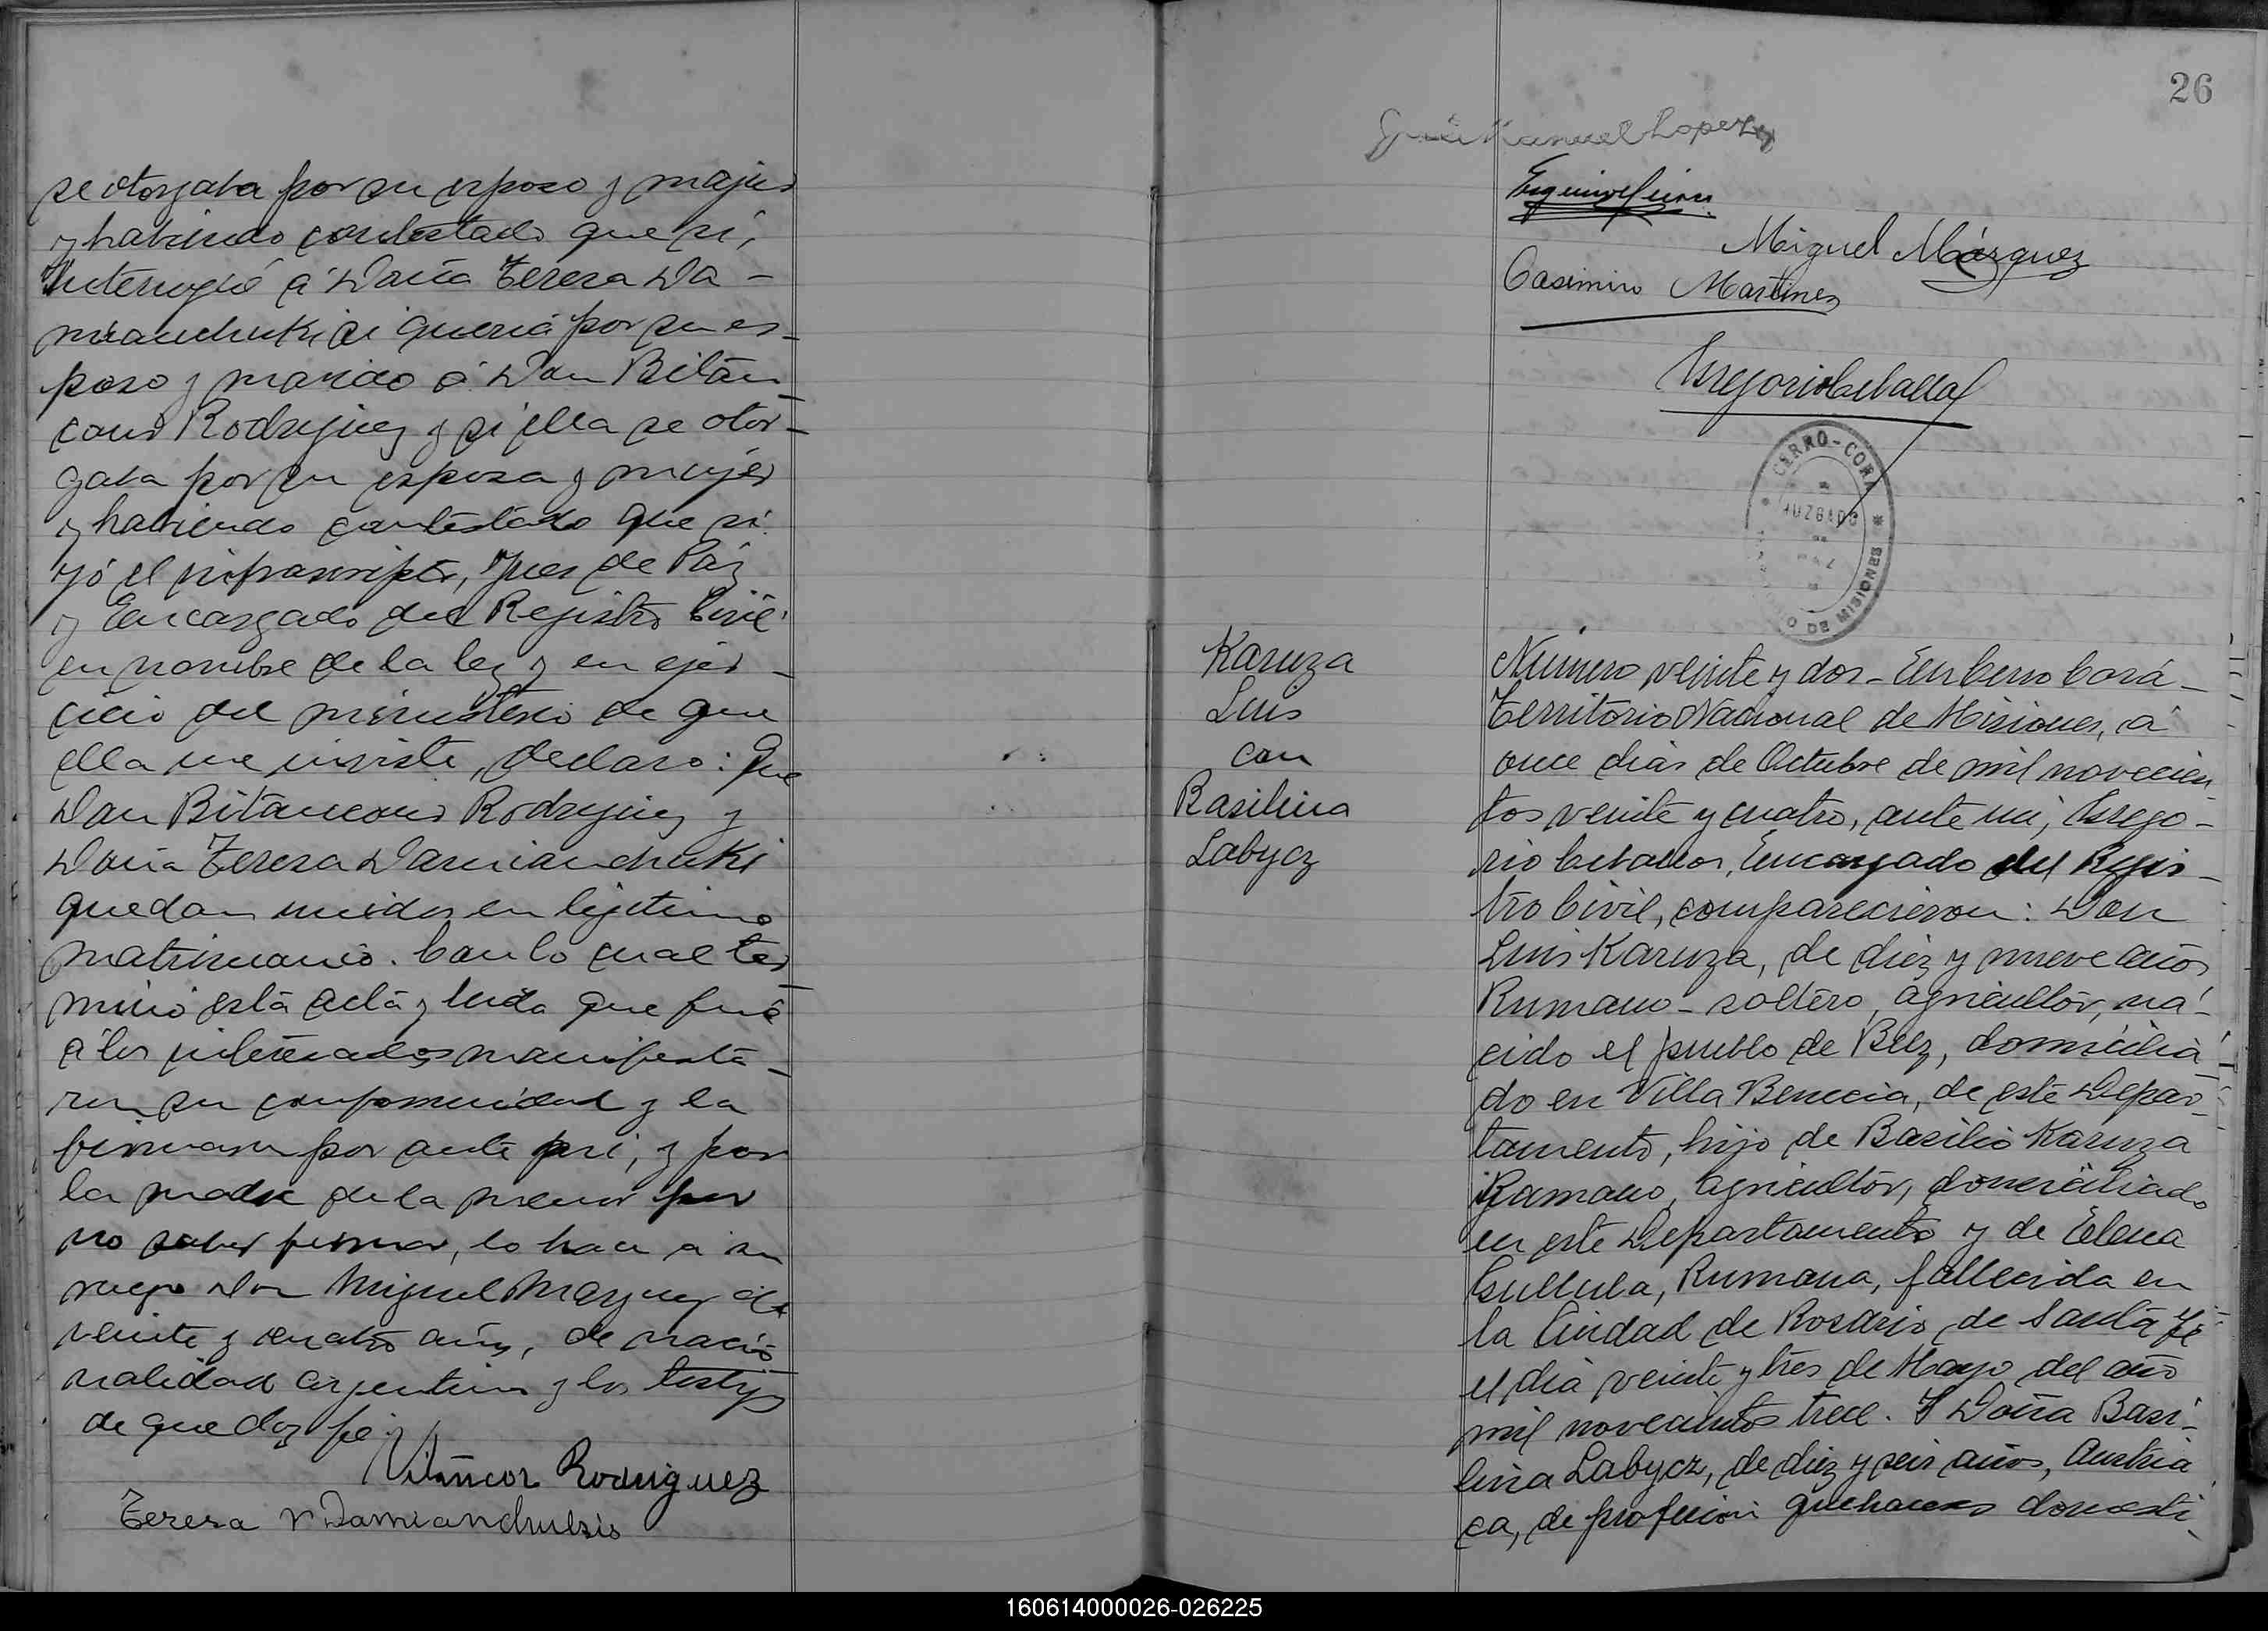 se otorgaba por su esposo y mujer
y habiendo contestado que sí,
Interrogué á Doña Teresa Da-
mianchuki si queria por su es-
poso y marido á Don Bitan
cour Rodrijuez y si ella se otor-
gaba por su esposa y mujer
y habiendo contestado que si
yó el infrascripto, Juez de Páz
y Encargado del Registro Civil
en nombre de la ley y en ejer-
cicio del ministerio de que
ella me inviste, declaro: Que
Don Bitancour Rodrijuez y
Doña Teresa Damianchuki
quedan unidos en lejitimo
matrimonio. Con lo cual ter
minó esta acta y leida que fué
á los interesados manifesta-
ron su conformidad y la
firmaron por ante mi, y por
la madre de la menor por
no saber firmar, lo hace a su
ruego Don Miguel Marquez de
veinte y cuatro años, de nacio
nalidad argentino y los testigos
de que doy fé.
Vitáncor Rodriguez
Teresa Damianchuksis
26
José Manuel Lopez
Miguel Márquez
Casimiro Martinez
Gregorio Ceballos
CERRO-CORA
JUZGADO
DE MISIONES
Karuza
Luis
con
Basilina
Labycz
Número veinte y dos - En Cerro Corá -
Territorio Nacional de Misiones, á
once dias de Octubre de mil novecien
tos veinte y cuatro, ante mi, Grego-
rio Ceballos, Encargado del Regis-
tro Civil, comparecieron: Don
Luis Karuza, de diez y nueve años
Rumano - soltero, agricultor, na-
cido el pueblo de Belz, domicilia-
do en Villa Benecia, de este Depar-
tamento, hijo de Basilio Karuza
Ramano, agricultor, domiciliado
en este Departamento y de Elena
Rumana, fallecida en
la Ciudad de Rosario de Santa Fé
el dia veinte y tres de Mayo del año
mil novecientos trece. Y Doña Basi-
lina Labycz, de diez y seis años, Austria
ca, de profecion quehaceres domesti-
160614000026-026225